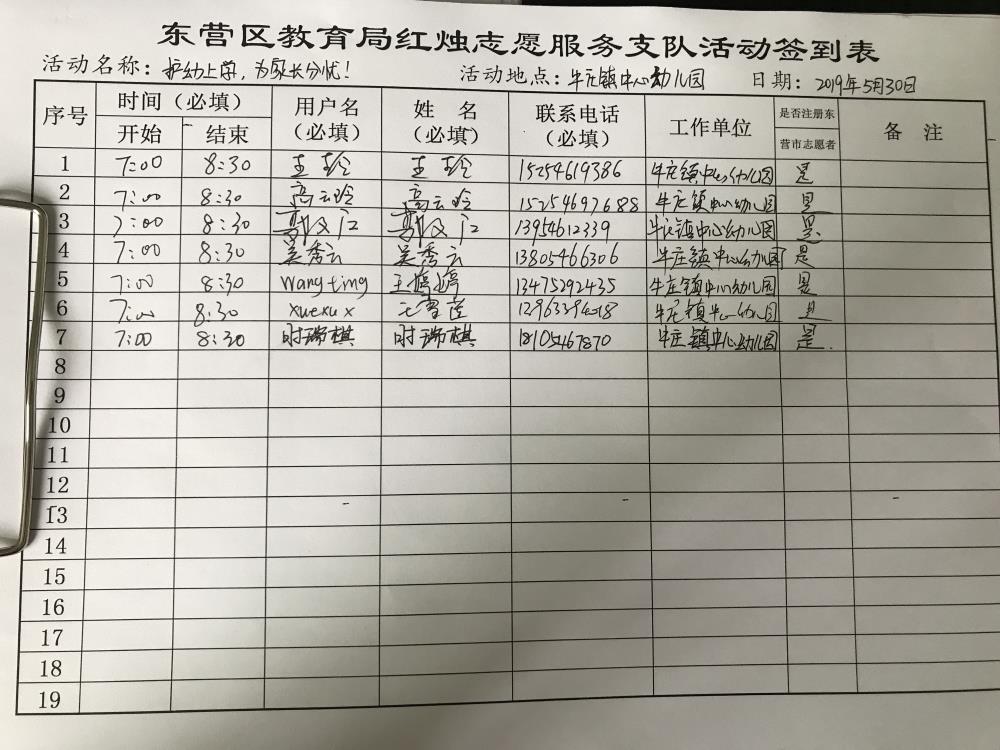 东营区教育局红烛志愿服务支队活动签到表
活动名称：护幼上学，为家长分忧！ 活动地点：牛庄镇中心幼儿园 日期：2019年5月30日
序号 时间（必填） 用户名（必填） 姓名（必填） 联系电话（必填） 工作单位 是否注册东营市志愿者 备注
开始 结束
1 7:00 8:30 王玲 王玲 15254619386 牛庄镇中心幼儿园 是
2 7:00 8:30 高云玲 高云玲 15254697688 牛庄镇中心幼儿园 是
3 7:00 8:30 13954612339 牛庄镇中心幼儿园 是
4 7:00 8:30 吴秀云 吴秀云 13805466306 牛庄镇中心幼儿园 是
5 7:00 8:30 wangting 王婷婷 13475292435 牛庄镇中心幼儿园 是
6 7:00 8:30 牛庄镇中心幼儿园 是
7 7:00 8:30 时瑞棋 时瑞棋 18105467870 牛庄镇中心幼儿园 是.
8
9
10
11
12
13
14
15
16
17
18
19